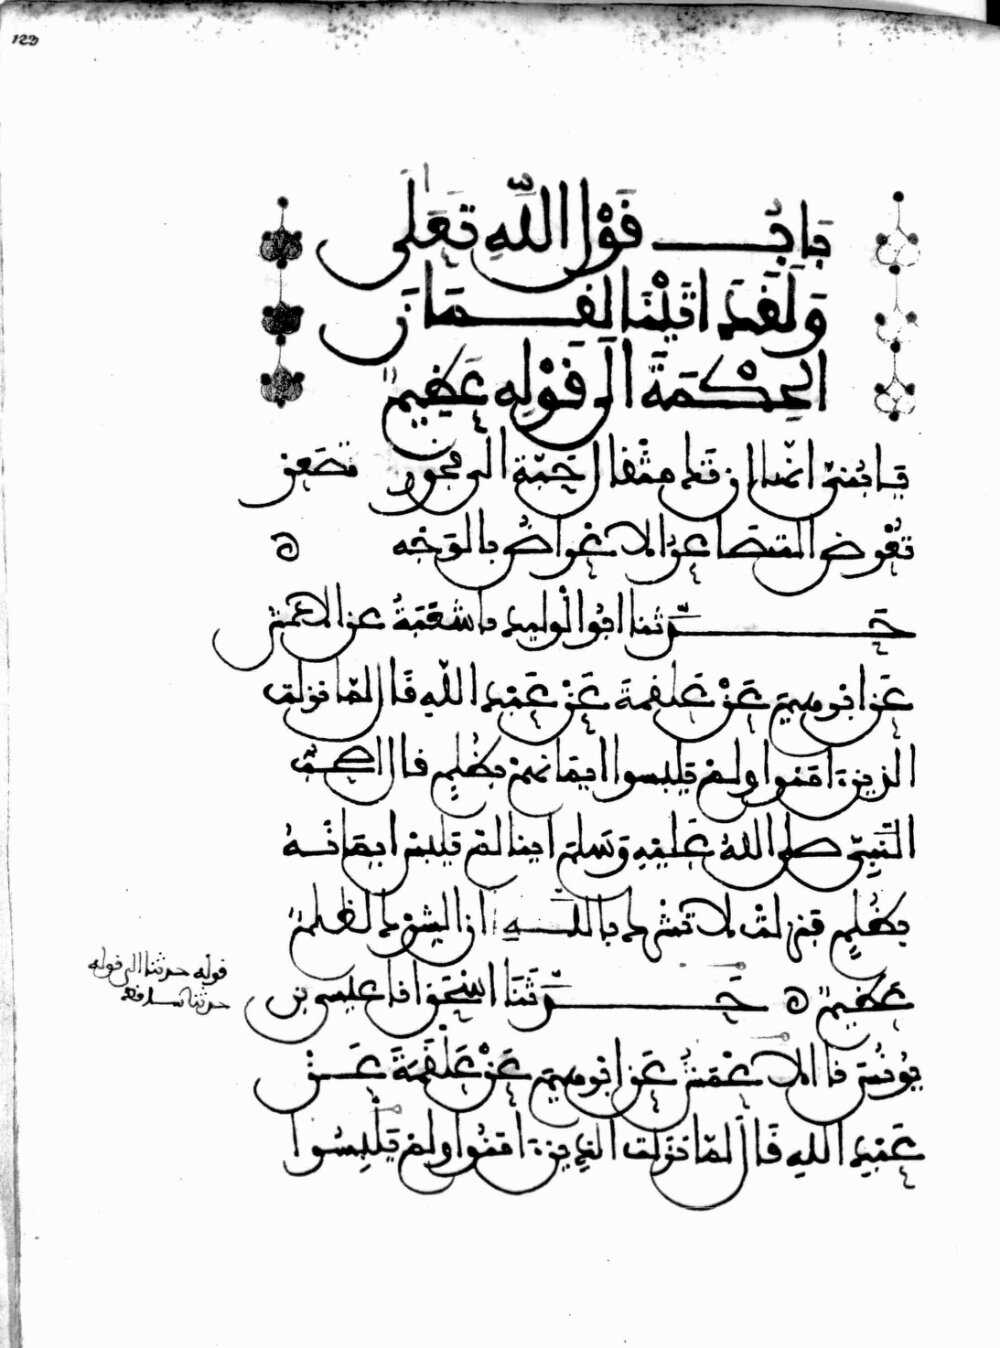 123
بَابُ قَوْلِ اللَّهِ تَعَلَى
وَلَقَدَ اتَيْنَا لُقْمَانَ
الْحِكْمَةَ الَى قَوْلِهِ عَظِيمٌ
يَا بُنَيِّ انَّهَا إن تَكُ مثْقَالَ حَبَّةٍ الى فخور تصعر
تُعْرِض التصَاعرُ الاعْرَاضُ بالْوَجْه ه
حَدَّثنا ابُو الْوليد نا شُعْبَةُ عن الاعْمش
عَن ابْرهيمَ عَنْ عَلْقَمَةَ عَنْ عَبْد اللهِ قَالَ لمّا نزلت
الذين ءامَنُوا ولمْ يَلْبِسوا ايمَانَهمْ بِظُلْمٍ قال اصحٰب
النَّبيِّ صلى اللهُ عَلَيْهِ وَسَلم اينا لمْ يلبسْ ايمَانَهُ
بِظُلْمٍ فنزلتْ لا تشْرك باللهِ ان الشرْك لظلمٌ
عَظِيمٌ ه حَدَّثَنَا اسْحَقُ انا عيسى بن
يُونُسَ نا الاعْمَشُ عَن ابْرهيمَ عَنْ عَلْقَمَةَ عَنْ
عَبْدِ اللهِ قَالَ لمّا نزلت الذِين ءامَنُوا ولمْ يَلْبِسُوا
قوله حدثنا الى قوله
حدثنا